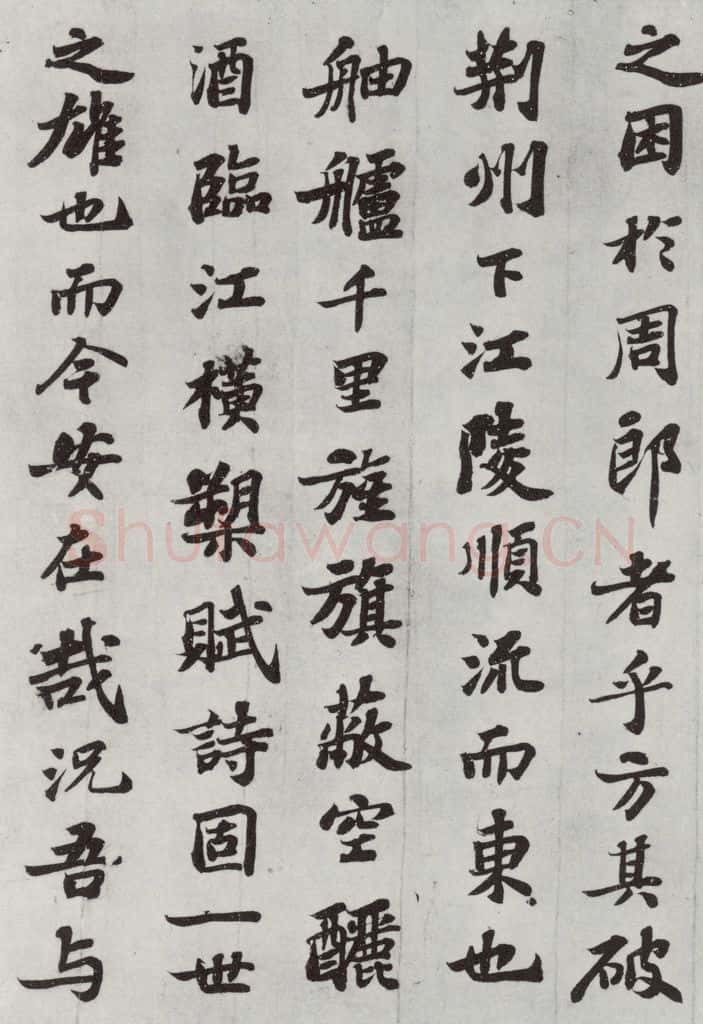 之困於周郎者乎方其破
荆州下江陵順流而東也
舳艫千里旌旗蔽空釃
酒臨江橫槊賦詩固一世
之雄也而今安在哉況吾与
Shufawang.CN